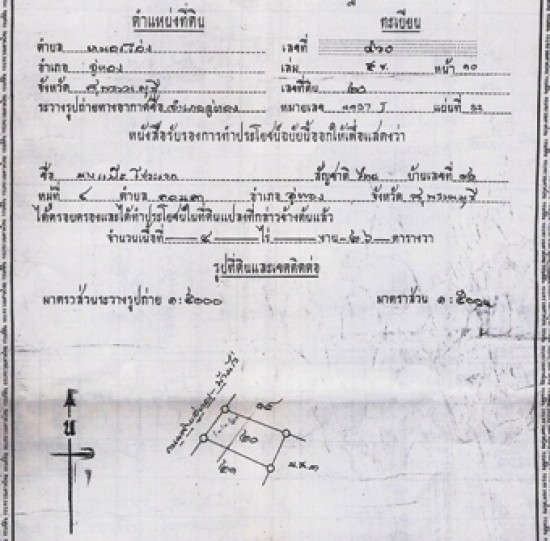 ตำแหน่งที่ดิน
ทะเบียน
ตำบล หนองโอ่ง
เลขที่ ๕๖๐
อำเภอ อู่ทอง
เล่ม ๕ ข. หน้า ๑๐
จังหวัด สุพรรณบุรี
เลขที่ดิน ๒๐
ระวางรูปถ่ายทางอากาศชื่อ อำเภออู่ทอง
หมายเลข I แผ่นที่
หนังสือรับรองการทำประโยชน์ฉบับนี้ออกให้เพื่อแสดงว่า
ชื่อ สัญชาติ ไทย บ้านเลขที่
หมู่ที่ ๔ ตำบล ดอนคา อำเภอ อู่ทอง จังหวัด สุพรรณบุรี
ได้ครอบครองและได้ทำประโยชน์ในที่ดินแปลงที่กล่าวข้างต้นแล้ว
จำนวนเนื้อที่ ๔ ไร่ - งาน ๒๖ ตารางวา
รูปที่ดินและเขตติดต่อ
มาตราส่วนระวางรูปถ่าย ๑:๕๐๐๐
มาตราส่วน ๑:๕๐๐๐
๑๙
น
๒๐
๒๑
น.ส.๓